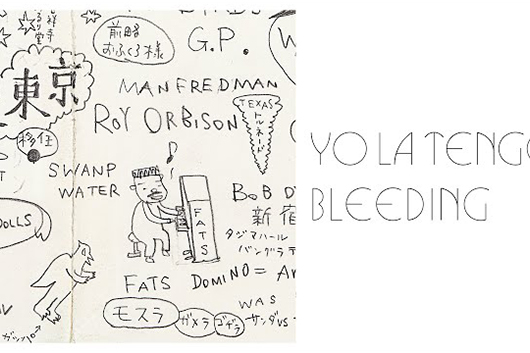 前略
おふくろ様
G.P.
東京
MANFREDMAN
ROY ORBISON
TEXAS
トルネード
移住
SWANP
WATER
DOLLS
FATS
新宿
タジマハール
バングラデ
FATS DOMINO =
モスラ
ガメラ
ゴヂラ
WAS
サンダ VS
YO LA TENGO
BLEEDING